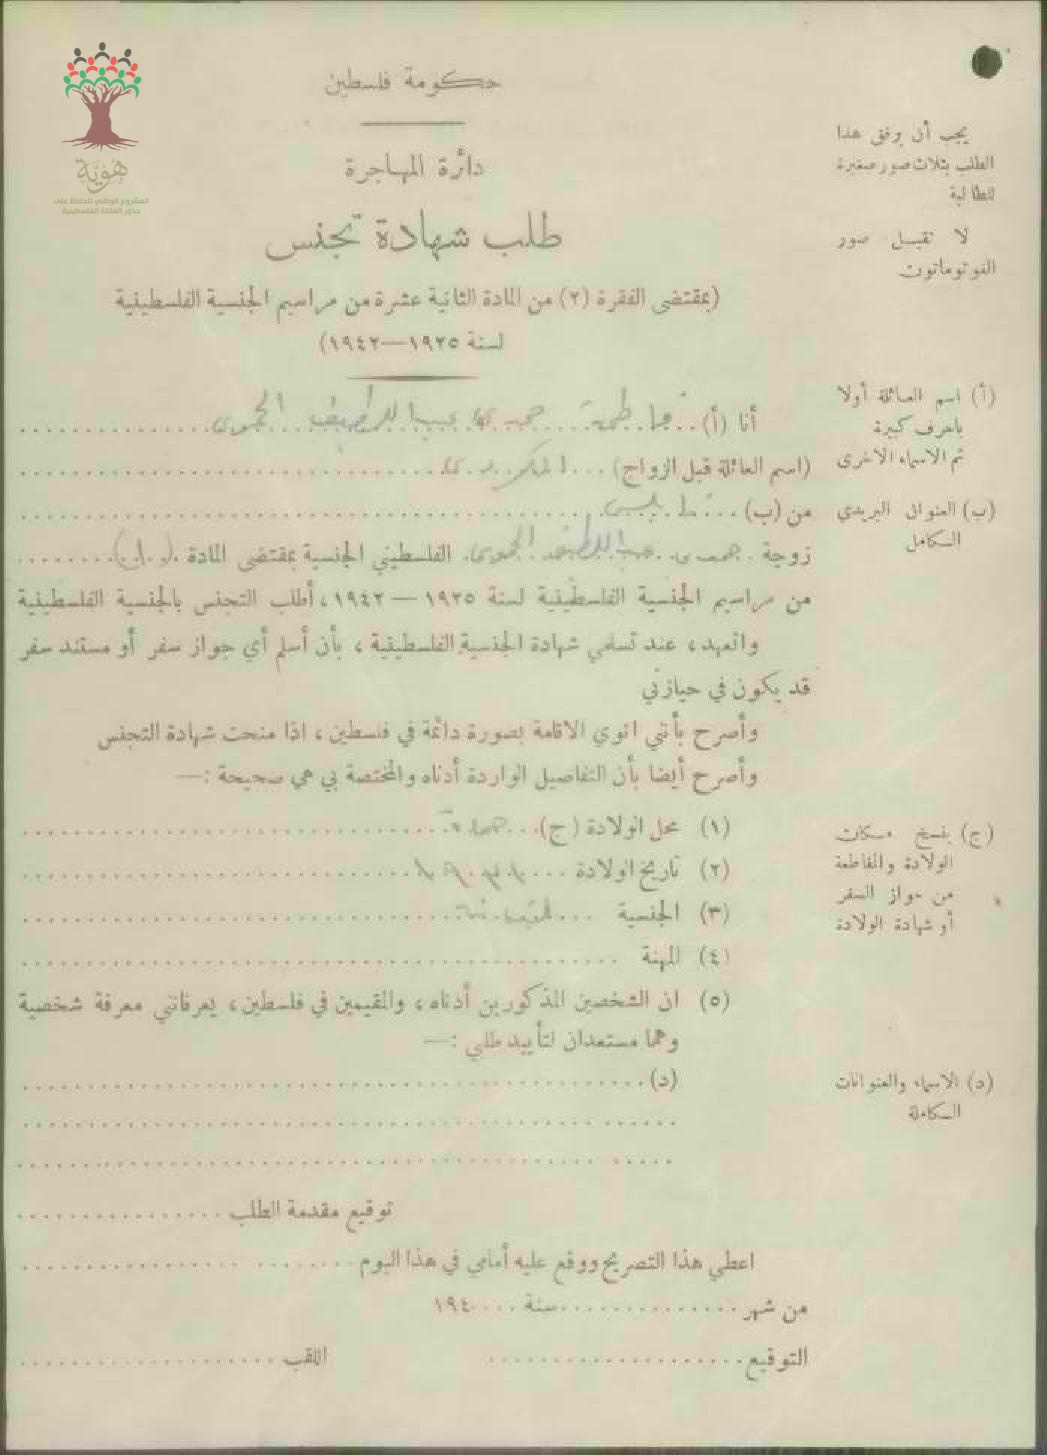 هوية
المشروع الوطني للحفاظ على
جذور العائلة الفلسطينية
حكومة فلسطين
دائرة المهاجرة
طلب شهادة تجنس
(بمقتضى الفقرة (٢) من المادة الثانية عشرة من مراسيم الجنسية الفلسطينية
لسنة ١٩٢٥—١٩٤٢)
يجب أن يرفق هذا
الطلب بثلاث صور صغيرة
للطالبة
لا تقبل صور
الفوتوماتون
أنا (أ) فاطمة حمدي عبد اللطيف الحموي
(اسم العائلة قبل الزواج)
من (ب) نابلس
زوجة عبد اللطيف الحموي الفلسطيني الجنسية بمقتضى المادة
من مراسيم الجنسية الفلسطينية لسنة ١٩٢٥ — ١٩٤٢، أطلب التجنس بالجنسية الفلسطينية
واتعهد، عند تسلمي شهادة الجنسية الفلسطينية، بأن أسلم أي جواز سفر أو مستند سفر
قد يكون في حيازتي
وأصرح بأنني انوي الاقامة بصورة دائمة في فلسطين، اذا منحت شهادة التجنس
وأصرح أيضا بأن التفاصيل الواردة أدناه والمختصة بي هي صحيحة :—
(١) محل الولادة (ج) حماة
(٢) تاريخ الولادة
(٣) الجنسية
(٤) المهنة
(٥) ان الشخصين المذكورين أدناه، والمقيمين في فلسطين، يعرفانني معرفة شخصية
وهما مستعدان لتأييد طلبي :—
(د)
توقيع مقدمة الطلب
اعطي هذا التصريح ووقع عليه أمامي في هذا اليوم
من شهر سنة ١٩٤
التوقيع اللقب
(أ) اسم العائلة أولا
باحرف كبيرة
ثم الاسماء الاخرى
(ب) العنوان البريدي
الكامل
(ج) ينسخ مكان
الولادة والمقاطعة
من جواز السفر
أو شهادة الولادة
(د) الاسماء والعنوانات
الكاملة